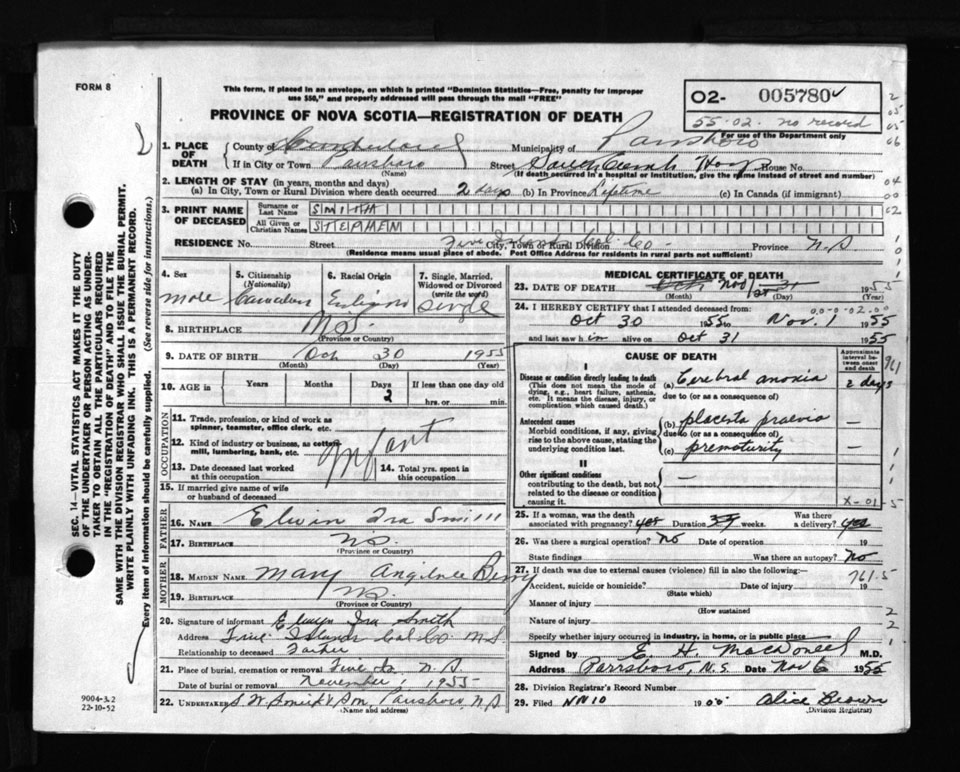 FORM 8
This form, if placed in an envelope, on which is printed "Dominion Statistics—Free, penalty for improper
use $50," and properly addressed will pass through the mail "FREE"
02- 005780
PROVINCE OF NOVA SCOTIA—REGISTRATION OF DEATH
55-02. no record
For use of the Department only
1. PLACE OF DEATH
County of Cumberland
Municipality of Parrsboro
If in City or Town Parrsboro
(Name)
Street South Cumb Hosp House No.
(If death occurred in a hospital or institution, give the name instead of street and number)
2. LENGTH OF STAY (in years, months and days)
(a) In City, Town or Rural Division where death occurred 2 days (b) In Province Lifetime (c) In Canada (if immigrant)
3. PRINT NAME OF DECEASED
Surname or Last Name SMITH
All Given or Christian Names STEPHEN
RESIDENCE No. Street Five Islands Col. Co. City, Town or Rural Division Province N.S
(Residence means usual place of abode. Post Office Address for residents in rural parts not sufficient)
4. Sex
male
5. Citizenship
(Nationality)
Canadian
6. Racial Origin
English
7. Single, Married, Widowed or Divorced
(write the word)
Single
8. BIRTHPLACE N.S.
(Province or Country)
9. DATE OF BIRTH Oct 30 1955
(Month) (Day) (Year)
10. AGE in
Years Months Days If less than one day old
2 hrs. or min.
OCCUPATION
11. Trade, profession, or kind of work as
spinner, teamster, office clerk, etc.
12. Kind of industry or business, as cotton-
mill, lumbering, bank, etc.
Infant
13. Date deceased last worked
at this occupation
14. Total yrs. spent in
this occupation
15. If married give name of wife
or husband of deceased
FATHER
16. NAME Elwin Ira Smith
17. BIRTHPLACE N.S.
(Province or Country)
MOTHER
18. MAIDEN NAME Mary Berry
19. BIRTHPLACE N.S.
(Province or Country)
20. Signature of informant Elwyn Ira Smith
Address Five Islands Col. Co. N.S
Relationship to deceased Father
21. Place of burial, cremation or removal Five Is N.S
Date of burial or removal November 1, 1955
22. UNDERTAKER & Son, Parrsboro, N.S
(Name and address)
MEDICAL CERTIFICATE OF DEATH
23. DATE OF DEATH Nov 1st 1955
(Month) (Day) (Year)
24. I HEREBY CERTIFY that I attended deceased from:
Oct 30 1955 to Nov. 1 1955
and last saw him alive on Oct 31 1955
CAUSE OF DEATH
Approximate interval between onset and death
I
Disease or condition directly leading to death
(This does not mean the mode of
dying, e.g., heart failure, asthenia,
etc. It means the disease, injury, or
complication which caused death.)
(a) Cerebral anoxia 2 days
due to (or as a consequence of)
Antecedent causes
Morbid conditions, if any, giving
rise to the above cause, stating the
underlying condition last.
(b) placenta praevia —
due to (or as a consequence of)
(c) prematurity —
II
Other significant conditions
contributing to the death, but not
related to the disease or condition
causing it.
—
X-01-5
25. If a woman, was the death
associated with pregnancy? yes Duration weeks. Was there a delivery? yes
26. Was there a surgical operation? No Date of operation 19
State findings Was there an autopsy? No
27. If death was due to external causes (violence) fill in also the following:—
761.5
Accident, suicide or homicide? Date of injury 19
(State which)
Manner of injury
(How sustained)
Nature of injury
Specify whether injury occurred in industry, in home, or in public place
Signed by E. H. MacDonell M.D.
Address Parrsboro, N.S. Date Nov 6 1955
28. Division Registrar's Record Number
29. Filed 19 Alice Brown
(Division Registrar)
9004-3.2
22-10-52
SEC. 14—VITAL STATISTICS ACT MAKES IT THE DUTY
OF THE UNDERTAKER OR PERSON ACTING AS UNDER-
TAKER TO OBTAIN ALL THE PARTICULARS REQUIRED
IN THE "REGISTRATION OF DEATH" AND TO FILE THE
SAME WITH THE DIVISION REGISTRAR WHO SHALL ISSUE THE BURIAL PERMIT.
WRITE PLAINLY WITH UNFADING INK. THIS IS A PERMANENT RECORD.
Every item of information should be carefully supplied. (See reverse side for instructions.)